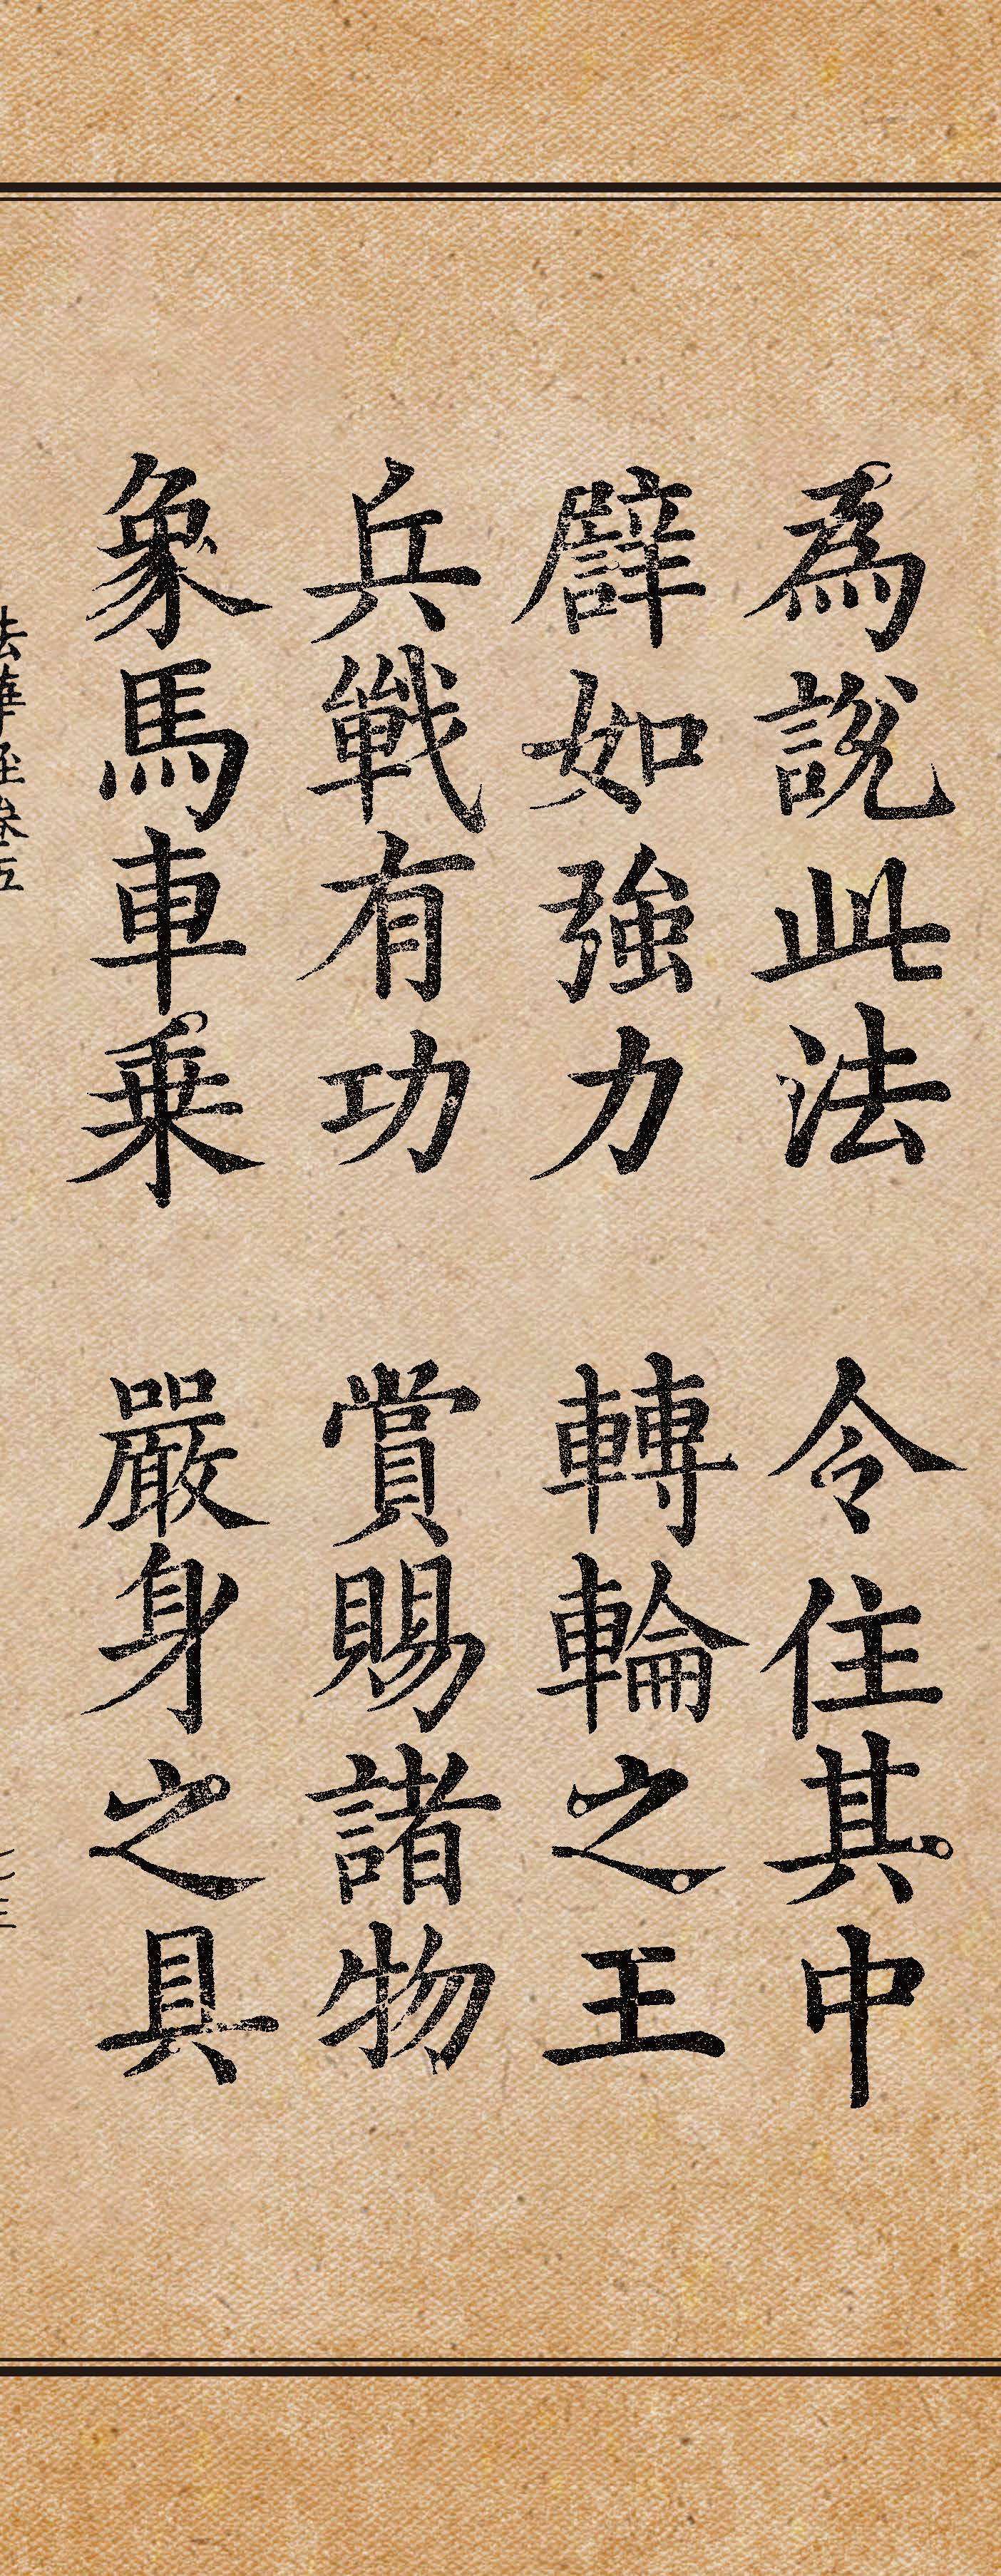 爲說此法　令住其中
譬如強力　轉輪之王
兵戰有功　賞賜諸物
象馬車乗　嚴身之具
法華経巻五